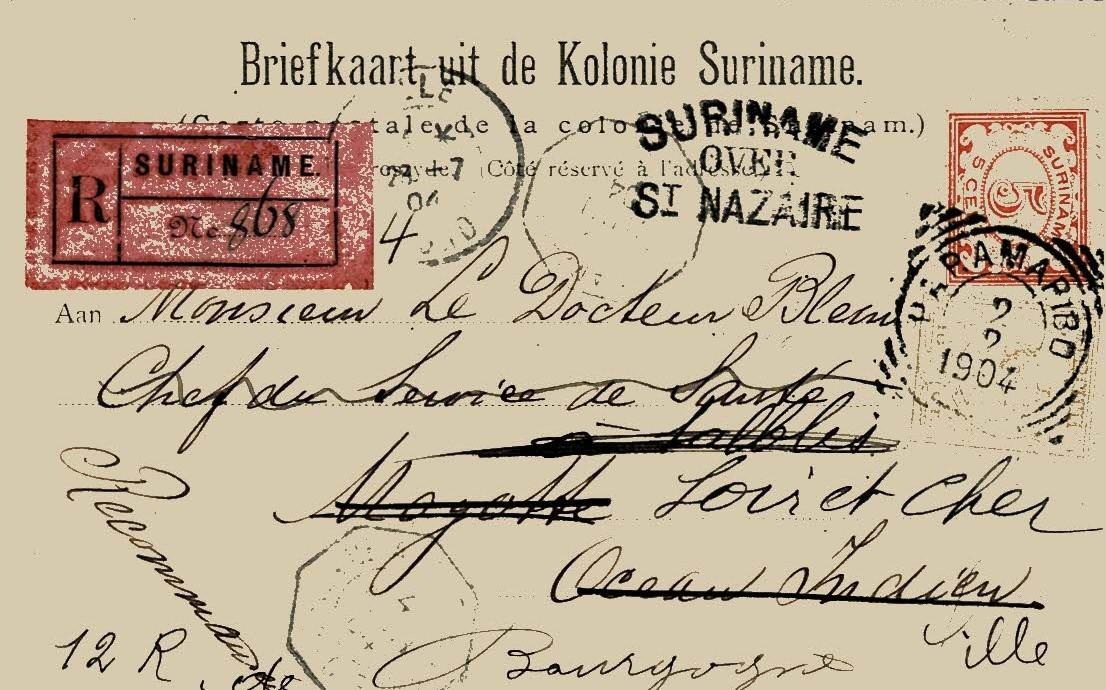 Briefkaart uit de Kolonie Suriname.
(Carte postale de la colonie de Surinam.)
(Côté réservé à l'adresse.)
R SURINAME.
No 868
SURINAME
OVER
ST NAZAIRE
SURINAME
5 CE
PARAMARIBO
2
2
1904
4
22
7
04
Aan Monsieur Le Docteur Blein
Chef du Service de Santé
à
Mayotte Loir et Cher
Océan Indien
ille
Bourgogne
Recommandée
12 R